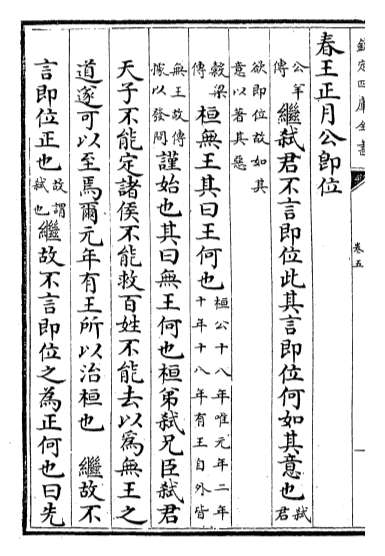 欽定四庫全書 卷五
春王正月公即位
公羊傳 繼弑君不言即位此其言即位何如其意也 弑君
欲即位故如其
意以著其惡
穀梁傳 桓無王其曰王何也 桓公十八年唯元年二年十年十八年有王自外皆
無王故傳據以發問 謹始也其曰無王何也桓弟弑兄臣弑君
天子不能定諸侯不能救百姓不能去以爲無王之
道遂可以至焉爾元年有王所以治桓也 繼故不
言即位正也 故謂弑也 繼故不言即位之為正何也曰先